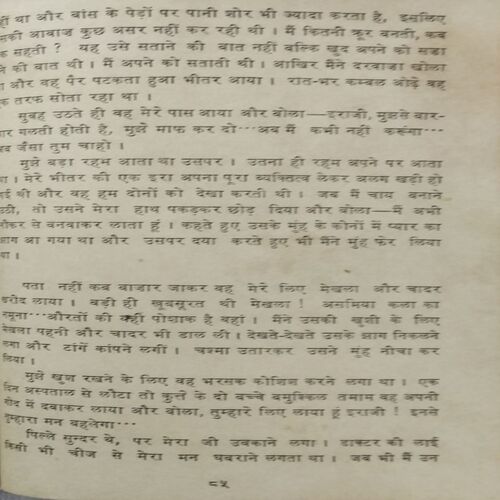 हीं था और बांस के पेड़ों पर पानी शोर भी ज्यादा करता है, इसलिए
सकी आवाज कुछ असर नहीं कर रही थी । मैं कितनी क्रूर बनती, कब
क सहती ? यह उसे सताने की बात नहीं बल्कि खुद अपने को सजा
ने की बात थी । मैं अपने को सताती थी । आखिर मैंने दरवाजा खोला
ा और वह पैर पटकता हुआ भीतर आया । रात-भर कम्बल ओढ़े वह
क तरफ सोता रहा था ।
सुबह उठते ही वह मेरे पास आया और बोला—इराजी, मुझसे बार-
ार गलती होती है, मुझे माफ कर दो···अब मैं कभी नहीं करूंगा···
जब जैसा तुम चाहो ।
मुझे बड़ा रहम आता था उसपर । उतना ही रहम अपने पर आता
था । मेरे भीतर की एक इरा अपना पूरा व्यक्तित्व लेकर अलग खड़ी हो
गई थी और वह हम दोनों को देखा करती थी । जब मैं चाय बनाने
उठी, तो उसने मेरा हाथ पकड़कर छोड़ दिया और बोला—मैं अभी
नौकर से बनवाकर लाता हूं । कहते हुए उसके मुंह के कोनों में प्यार का
झाग आ गया था और उसपर दया करते हुए भी मैंने मुंह फेर लिया
था ।
पता नहीं कब बाजार जाकर वह मेरे लिए मेखला और चादर
खरीद लाया । बड़ी ही खूबसूरत थी मेखला ! असमिया कला का
नमूना···औरतों की वही पोशाक है वहां । मैंने उसकी खुशी के लिए
मेखला पहनी और चादर भी डाल ली । देखते-देखते उसके झाग निकलने
लगा और टांगें कांपने लगीं । चश्मा उतारकर उसने मुंह नीचा कर
लिया ।
मुझे खुश रखने के लिए वह भरसक कोशिश करने लगा था । एक
दिन अस्पताल से लौटा तो कुत्ते के दो बच्चे बमुश्किल तमाम वह अपनी
गोद में दबाकर लाया और बोला, तुम्हारे लिए लाया हूं इराजी ! इनसे
तुम्हारा मन बहलेगा···
पिल्ले सुन्दर थे, पर मेरा जी उबकाने लगा । डाक्टर की लाई
किसी भी चीज से मेरा मन घबराने लगता था । जब भी मैं उन
८५